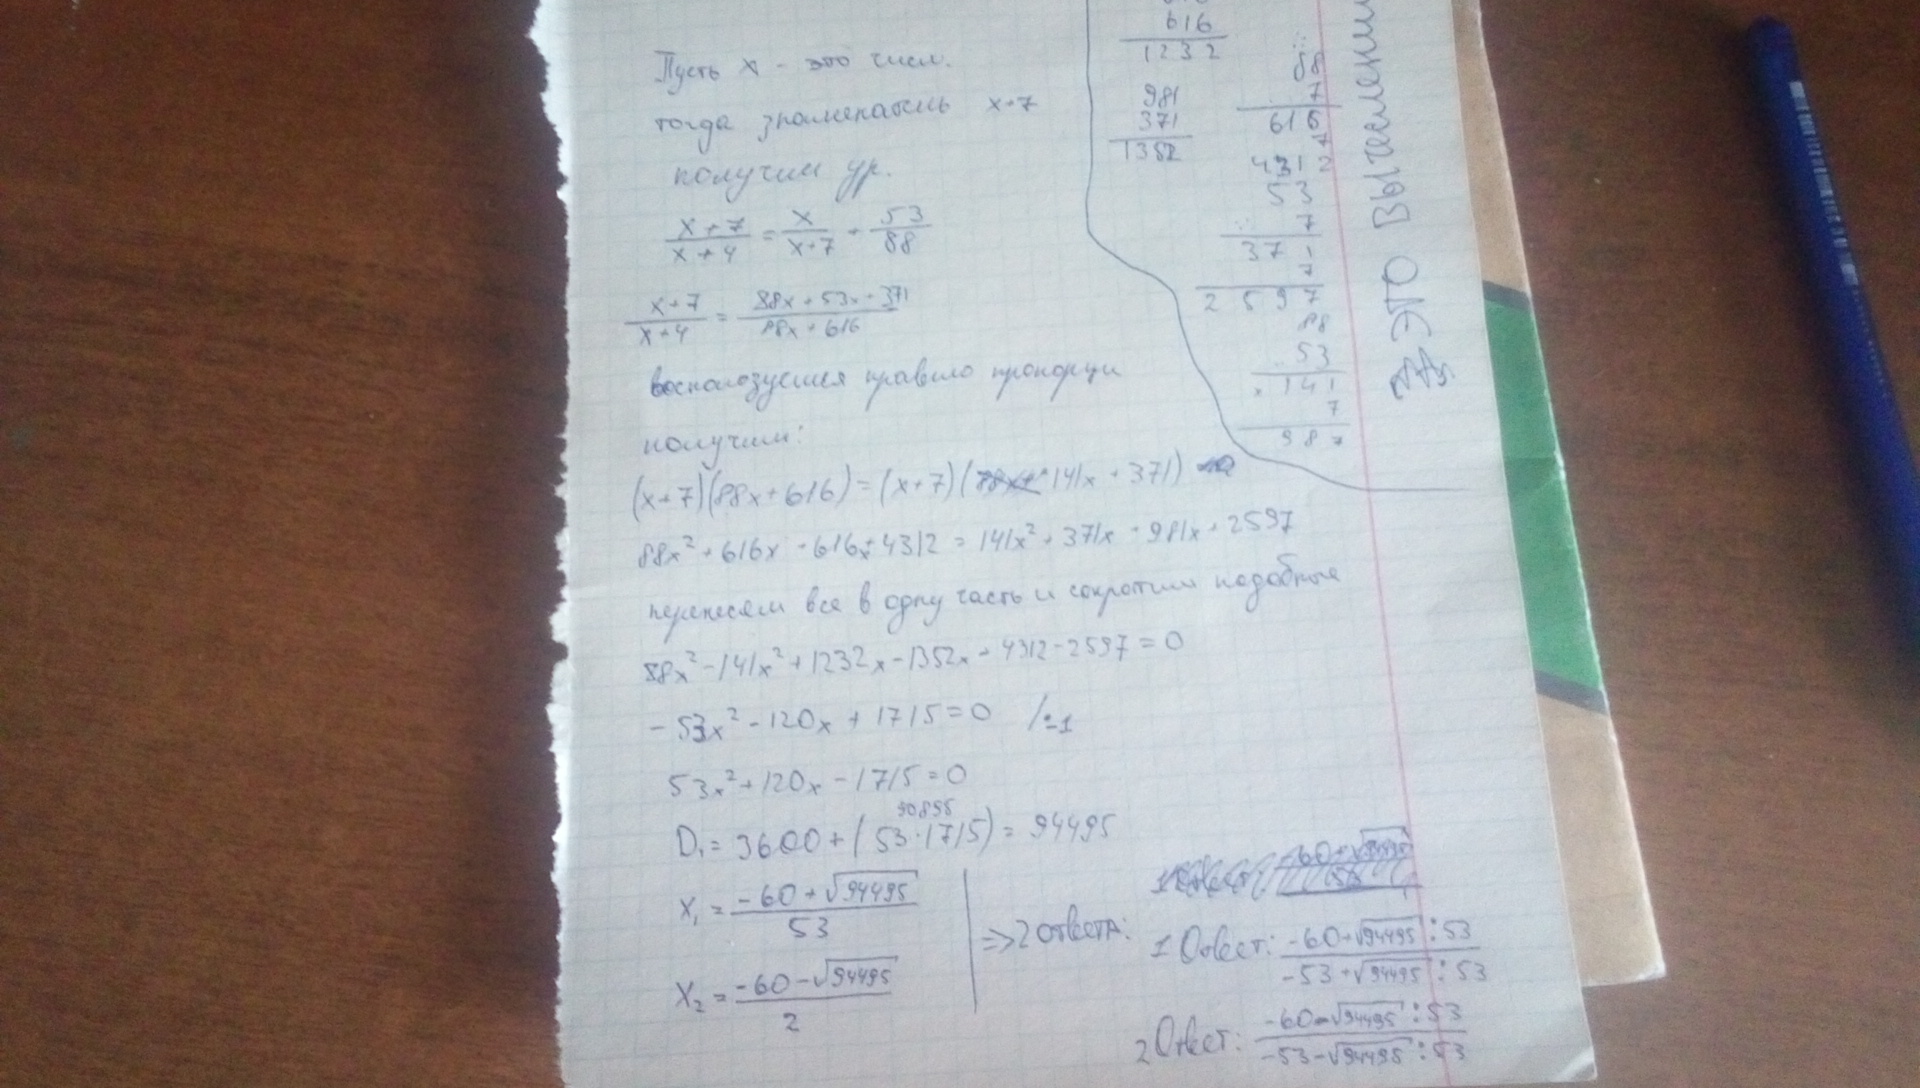 Пусть x - это числ.
тогда знаменатель x+7
получим ур.
x+7/x+4 = x/x+7 + 53/88
x+7/x+4 = 88x+53x+371/88x+616
воспользуемся правило пропорци
получим:
(x+7)(88x+616)=(x+7)(141x+371)
88x²+616x+616x+4312=141x²+371x+981x+2597
перенесем все в одну часть и сократим подобные
88x²-141x²+1232x-1352x+4312-2597=0
-53x²-120x+1715=0 /:-1
53x²+120x-1715=0
90895
D₁=3600+(53·1715)=94495
x₁=-60+√94495/53
x₂=-60-√94495/2
=>2 ответа:
1 Ответ: -60+√94495:53/-53+√94495:53
2 Ответ: -60-√94495:53/-53-√94495:53
616
1232
981
371
1352
88
7
616
7
4312
53
7
371
7
2597
88
53
141
7
987
ЭТО вычисления